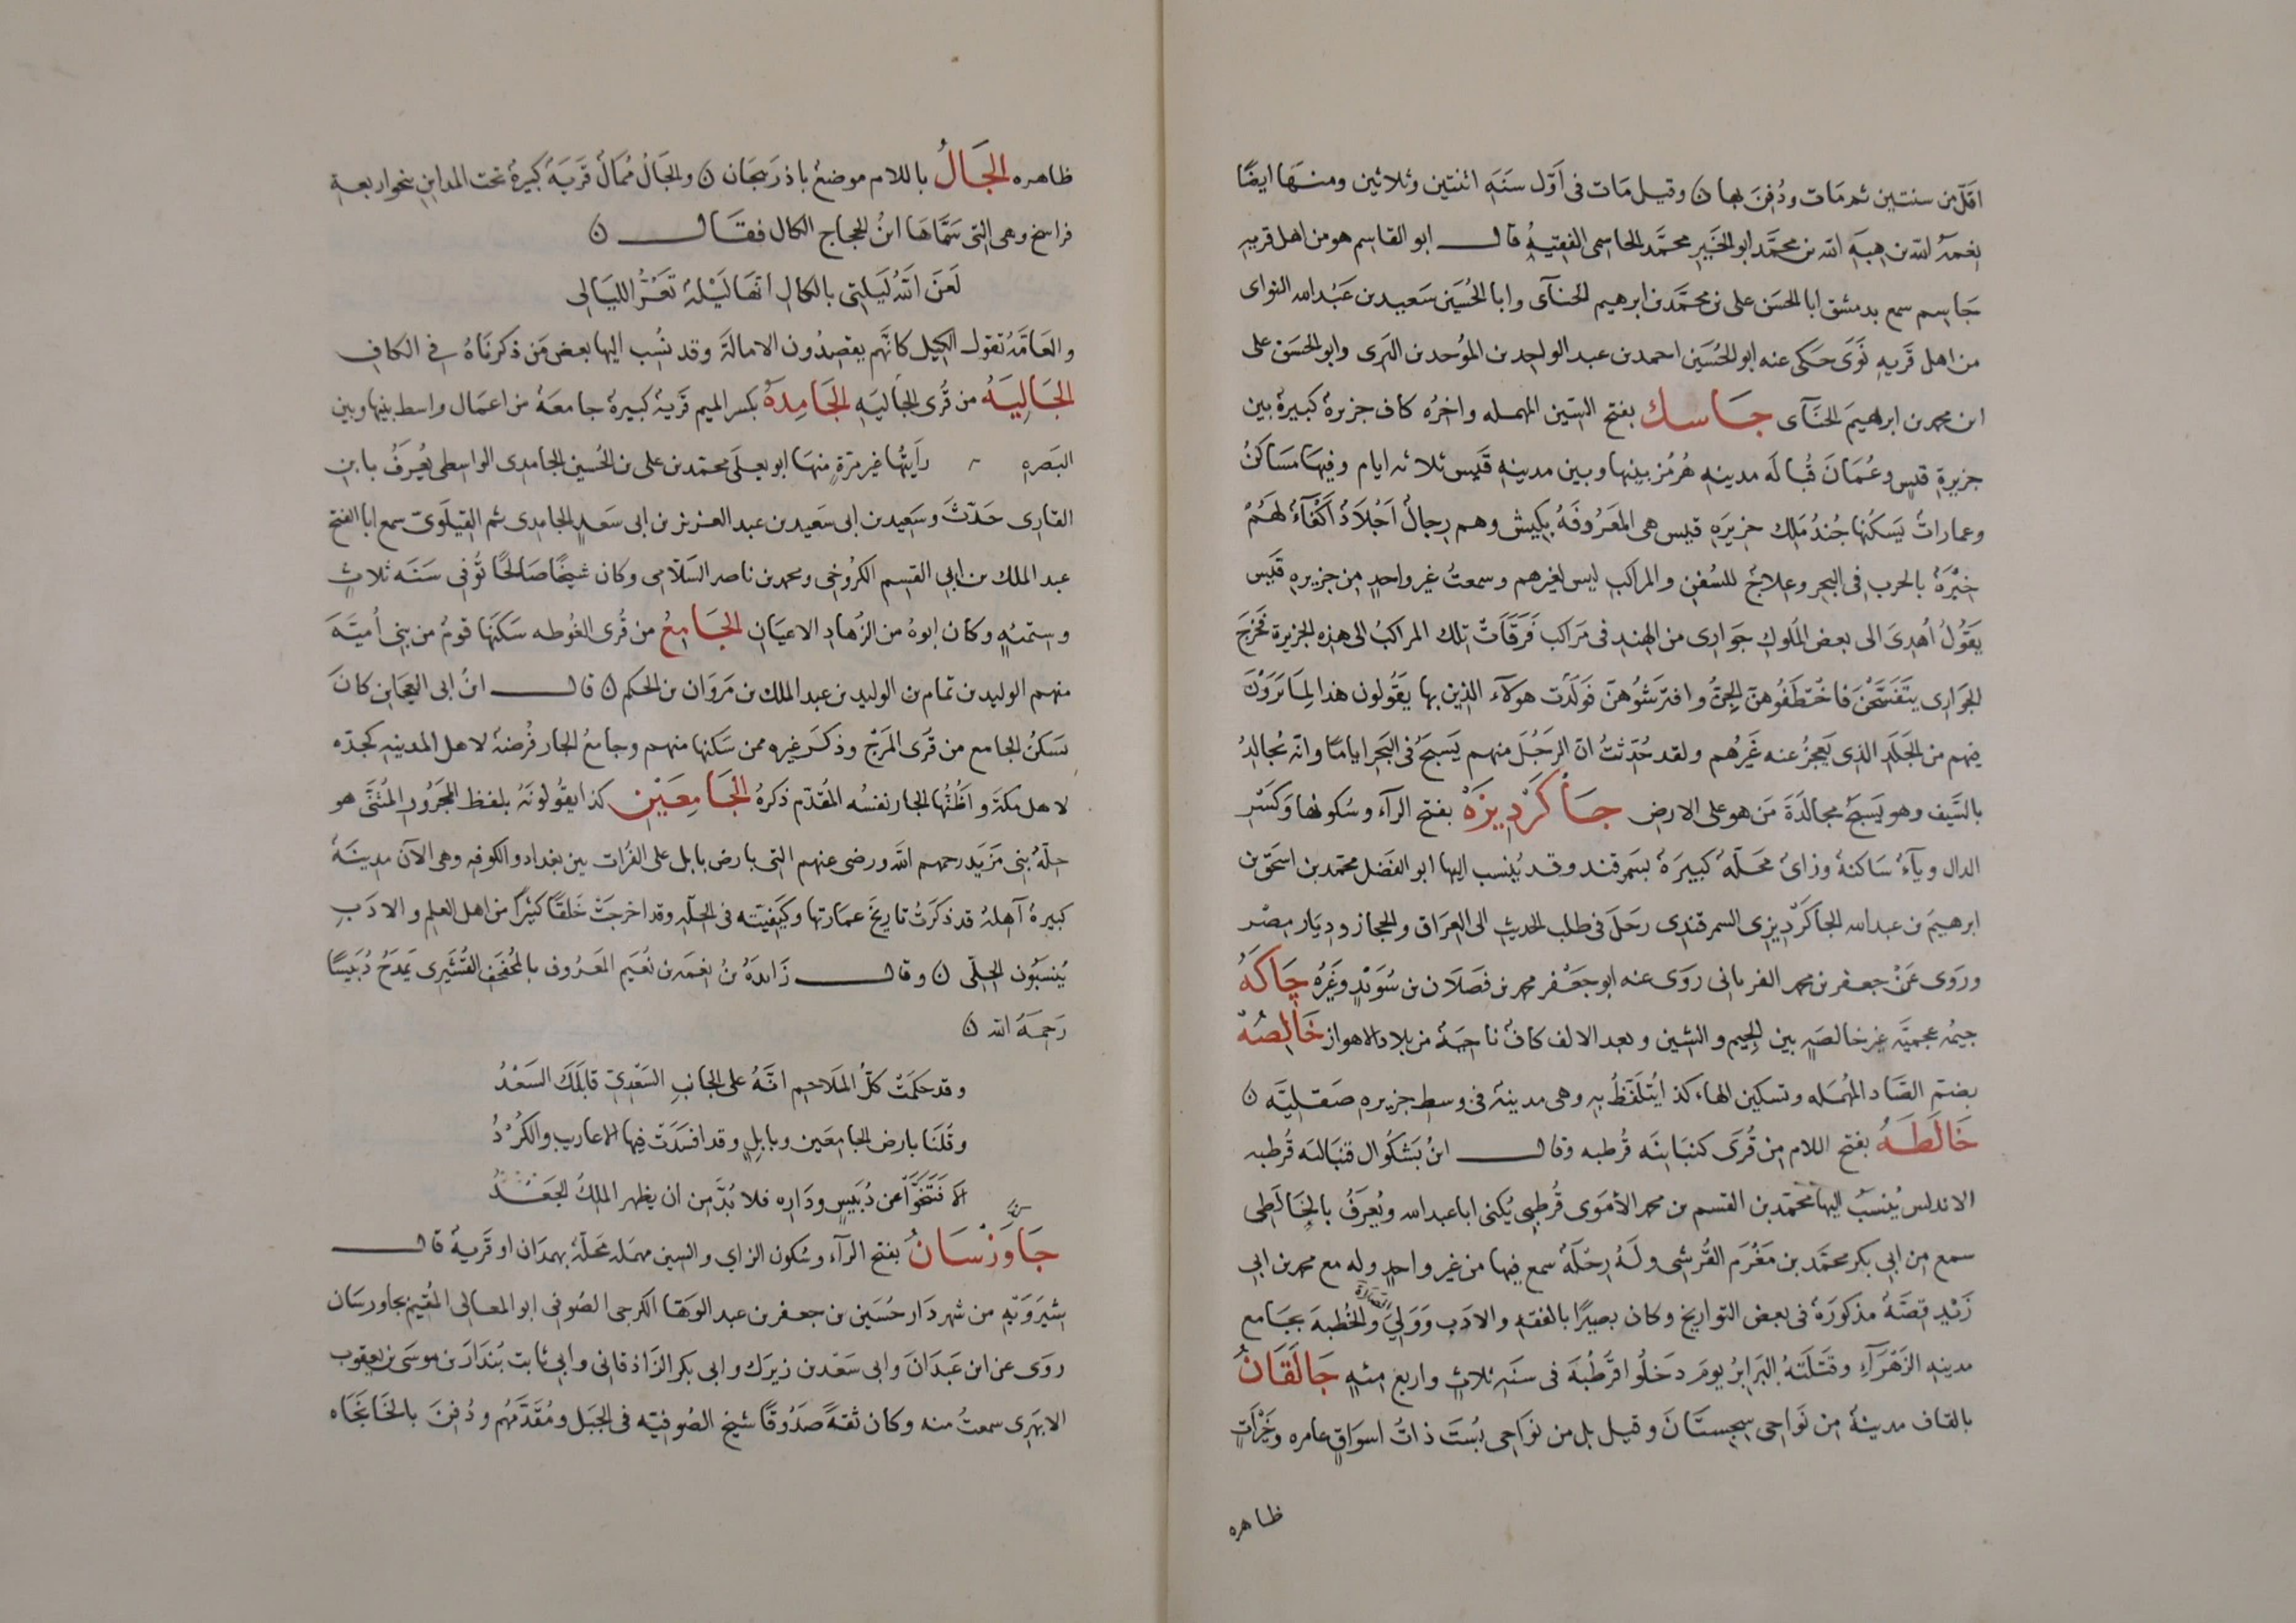 اقلّ من سنتين ثم مَات ودُفِنَ بها ن وقيل مَات فى اوّل سَنَهِ اثنتين وثلاثين ومنهَا ايضًا
نِعمهُ الله بن هِبهِ الله بن محمَّد ابو الخَيرِ محمَّد الجاسمى الفقيهُ قال ابو القاسِم هو من اهل قريهِ
جَاسِم سمع بدمشق ابا الحسَن على بن محمَّد بن ابرهيم الحنآى وابا الحُسَين سَعيد بن عَبْد الله النواى
من اهل قَريهِ نَوَى حَكى عنه ابو الحُسَين احمد بن عبد الواحِد بن المؤحد بن البَرى وابو الحسَن على
ابن محمد بن ابرهيمَ الحنَّآى جَاسك بفتح السّين المهمله واخرُه كاف جزيرةٌ كبيرةٌ بين
جزيرةِ قيسٍ وعُمَانَ قُبالَه مدينهِ هُرمُز بينها وبين مدينهِ قَيس ثلاثه ايام وفيهَا مسَاكنُ
وعمَاراتٌ يَسكنُها جُندُ مَلِك جزيرَهِ قيس هى المَعرُوفَهُ بكيش وهم رجالٌ اجْلادٌ اكْفَآءٌ لهَمْ
خِبْرَةٌ بالحرب فى البحر وعِلاجٌ للسُفنِ والمراكبِ ليس لغيرهم وسمعتُ غير واحدٍ مِن جزيرهِ قَيس
يَقوُلُ اُهدِىَ الى بعض المُلوكِ جوَارى من الهِند فى مَراكبَ فَرَقَاَتْ تِلك المراكبُ الى هذه الجزيرة فخرَجَ
الجوَارى يتَفَسَّحْنَ فاختطَفُوهنّ الجِنُّ وافترَشُوهُنّ فوَلَدْت هَولآء الذين بها يقولون هذا لمِا يَرَوْنَ
فيهم من الجَلَدِ الذى يَعجزُ عنه غَيرُهم ولقد حُدِّثتُ انّ الرّجُلَ منهم يَسبحُ فى البَحر ايامًا وانّه يجالِدُ
بالسَّيف وهو يَسبَحُ مجالَدَةَ مَن هو على الارضِ جَاكَرْدِيزَهْ بفتح الرآء وسُكونها وَكَسْرِ
الدال ويآءٌ سَاكنهٌ وزاىٌ محَلّهٌ كبيرَهٌ بسَمرقند وقد يُنسب اليها ابو الفَضل محمّد بن اسحَق بن
ابرهيمَ بن عبد الله الجاكَرْدِيزى السمرقندى رحَلَ فى طلب الحديثِ الى العِرَاق والحجاز ودِيَار مِصْر
وروَى عَنْ جعفر بن محمد الفريابى روَى عنه ابو جَعْفر محمد بن فَضلان بن سُوَيْدٍ وغَيرُه جَاكَهُ
جيمُه عجميَّه غير خالصَهٍ بين الجيم والشين وبعد الالف كافٌ ناحيَهٌ من بلاد الاهواز خَالِصُهْ
بضم الصّاد المُهمَله وتسكين الهاءِ كذا يُتلَفّظُ بهِ وهى مدينهٌ فى وسط جزيرهِ صَقليَّه ن
خَالَطَهُ بفتح اللام مِن قُرَى كنبانيَه قُرطبه وقال ابنُ بَشكُوال قنبَانيَه قُرطبه
الاندلس يُنسَبُ اليها محمّد بن القسم بن محمد الاُمَوى قُرطبىٌ يُكنى ابا عبد الله ويُعرَفُ بالخَالَطى
سمع مِن ابى بكر محمَّد بن مَعْرَم القُرشى ولَهُ رِحْلَةٌ سمع فيها من غير واحدٍ وله مع محمد بن ابى
زَيْدٍ قِصَّهٌ مذكورَهٌ فى بعض التواريخ وكان بصيرًا بالفقهِ والادَب وَوَلِىَ والخُطبهَ بجَامع
مدينهِ الزَهْرَآءِ وقَتلتهُ البرَابرُ يومَ دَخلُوا قُرطُبهَ فى سَنَهِ ثلاثٍ واربع مئهٍ جَالقَانُ
بالقاف مدينهٌ مِن نَواحى سِجسْتَانَ وقيل بل من نوَاحى بُسْتَ ذاتُ اسوَاقٍ عامره وَخَيْرَاتٍ
ظاهره
ظاهره الجَالُ باللام موضعٌ باذرَبيجَان ن والجَالُ مُمَالٌ قَريَهٌ كبيرهٌ تحت المداين بنحو اربعةِ
فراسخ وهى التى سَمَّاهَا ابنُ الحجاج الكال فقَال ن
لَعَنَ اللهُ لَيلتى بالكالِ انهَا لَيْلهٌ تَعُرُّ الليَالى
والعَامَّهُ تقول الكِيل كانّهم يقصِدُون الامالهَ وقد نُسِب اليها بعض مَن ذكرنَاهُ فى الكافِ
الجَالِيَهُ من قُرى الجَاليَهِ الجَامِدَةُ بكسر الميم قَريهٌ كبيرةٌ جامعَهٌ من اعمَال واسط بينها وبين
البصَرهِ رايتُها غير مَرّةٍ منهَا ابو يعلَى محتمّد بن على بن الحُسين الجامدى الواسطى يُعرَفُ بابنِ
القارى حَدّثَ وسَعِيد بن ابى سَعيد بن عبد العزيز بن ابى سَعدٍ الجامِدى ثم القيلَوى سمع ابا الفتح
عبد الملك بن ابى القسِم الكرُوخى ومحمد بن ناصر السَلاَمى وكان شيخًا صَالحًا تُوفى سَنَه ثلاثٍ
وستمئهٍ وكان ابوهُ من الزُهادِ الاعيَان الجَامِعُ من قُرى الغُوطه سَكنَها قومٌ من بنى اُميَّهَ
منهم الوليد بن تمام بن الوليد بن عبد الملك بن مَروَان بن الحكم ن قال ابنُ ابى العجَايز كانَ
يَسكنُ الجامع من قَرى المَرْج وذكَر غيره ممن سَكنها منهم وجامعُ الجار فُرضهٌ لاهل المدينهِ كجدّه
لاهل مكهَ واظُنُّها الجار نفسُه المقدّم ذكرهُ الجَامِعَيْنِ كذا يقوُلونَهُ بلفظ المَجرُورِ المُثنَّى هو
حِلّهُ بنى مَزيَد رحمهم الله ورضى عنهم التى بارض بابل على الفُرات بين بغداد والكوفهِ وهى الآن مدينَهٌ
كبيرهٌ آهِلهٌ قد ذكرتُ تاريخَ عمَارتها وكيَفيّتهِ فى الحِلّهِ وقد اخرَجَتْ خَلقًا كثيرًا من اهل العِلمِ والادَبِ
يُنسَبُون الحِلّى ن وقال زَايدهُ بنُ نِعمَه بن نُعَيم المعَروُف بالمُحَفحِف القُشَيرى يَمدَحُ دُبَيسًا
رَحِمَهُ الله ن
وقد حكمَتْ كلُّ المَلاحِم انّهُ على الجَانبِ السَعْدِىّ قابَلكَ السَعْدُ
وقَلنا بارضِ الجامِعَين وبابِلٍ وقد افسَدَت فيها الاعاريب والكُرْدُ
الا فَتَنَحَّوْا عن دُبَيسٍ ودَارِه فلا بُدَّ مِن ان يظهر الملِكُ الجَعْدُ
جَاوَرْسَانُ بفتح الرآء وسُكون الزاى والسين مهمَله مَحَلّهٌ بهمدَان او قَريهٌ قال
شِيرَوَيْهِ من شهردَار حُسَين بن جعفر بن عبد الوَهّاب الكرجى الصُوفى ابو المعَالى المُقيمُ بجاورسَان
روَى عن ابن عَبَدَانَ وابى سَعْد بن زيرَك وابى بكر الزَاذقانى وابى ثابت بُندَارَ بن موسَى بن يعقوب
الابهَرى سمعتُ منه وكان ثقهً صَدُوقًا شيخ الصُوفيّه فى الجبَل ومُقَدَّمَهُم ودُفنَ بالخَانجَاه